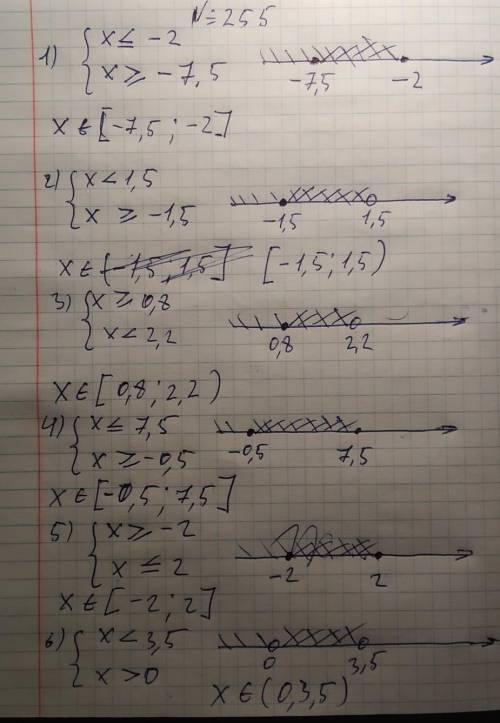 №255
1) { x ≤ -2
x ≥ -7,5
-7,5 -2
x ∈ [-7,5 ; -2]
2) { x < 1,5
x ≥ -1,5
-1,5 1,5
x ∈ [-1,5 1,5] [-1,5 ; 1,5)
3) { x ≥ 0,8
x < 2,2
0,8 2,2
x ∈ [0,8 ; 2,2)
4) { x ≤ 7,5
x ≥ -0,5
-0,5 7,5
x ∈ [-0,5 ; 7,5]
5) { x ≥ -2
x ≤ 2
-2 2
x ∈ [-2 ; 2]
6) { x < 3,5
x > 0
0 3,5
x ∈ (0,3,5)